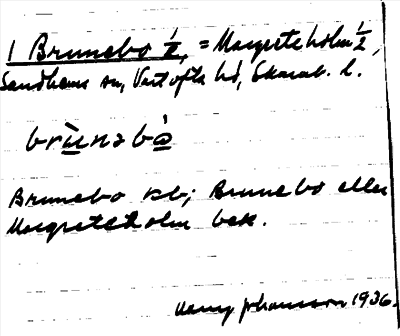 1 Brunebo 1/2, = Margreteholm 1/2,
Sandhems sn, Vartofta hd, Skarab. l.
brùnəbò
Brunebo kb; Brunebo eller
Margreteholm bek.
Johansson 1936.